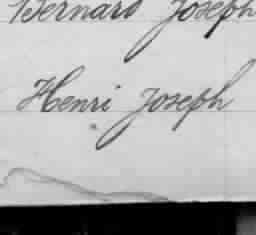 Bernard Joseph
Henri Joseph